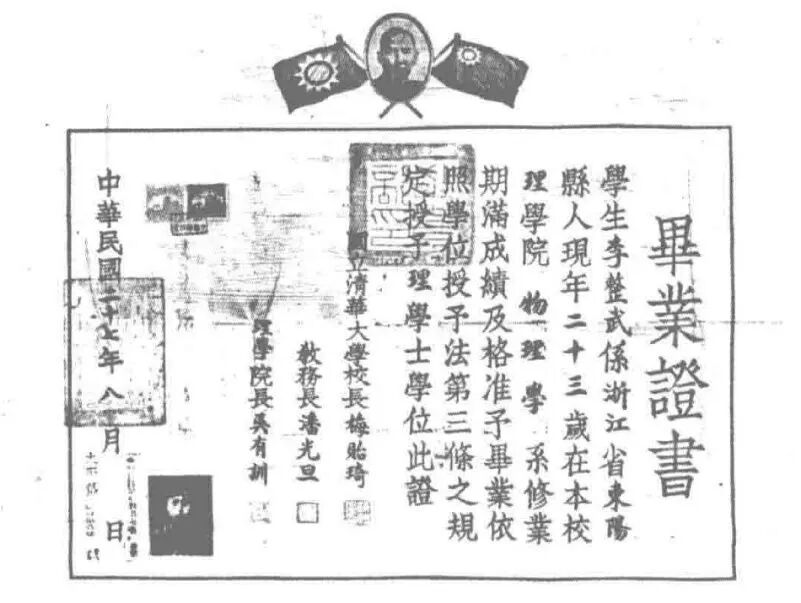 畢業證書
學生李整武係浙江省東陽
縣人現年二十三歲在本校
理學院物理學系修業
期滿成績及格准予畢業依
照學位授予法第三條之規
定授予理學士學位此證
國立清華大學校長梅貽琦
教務長潘光旦
理學院長吳有訓
中華民國二十七年八月 日